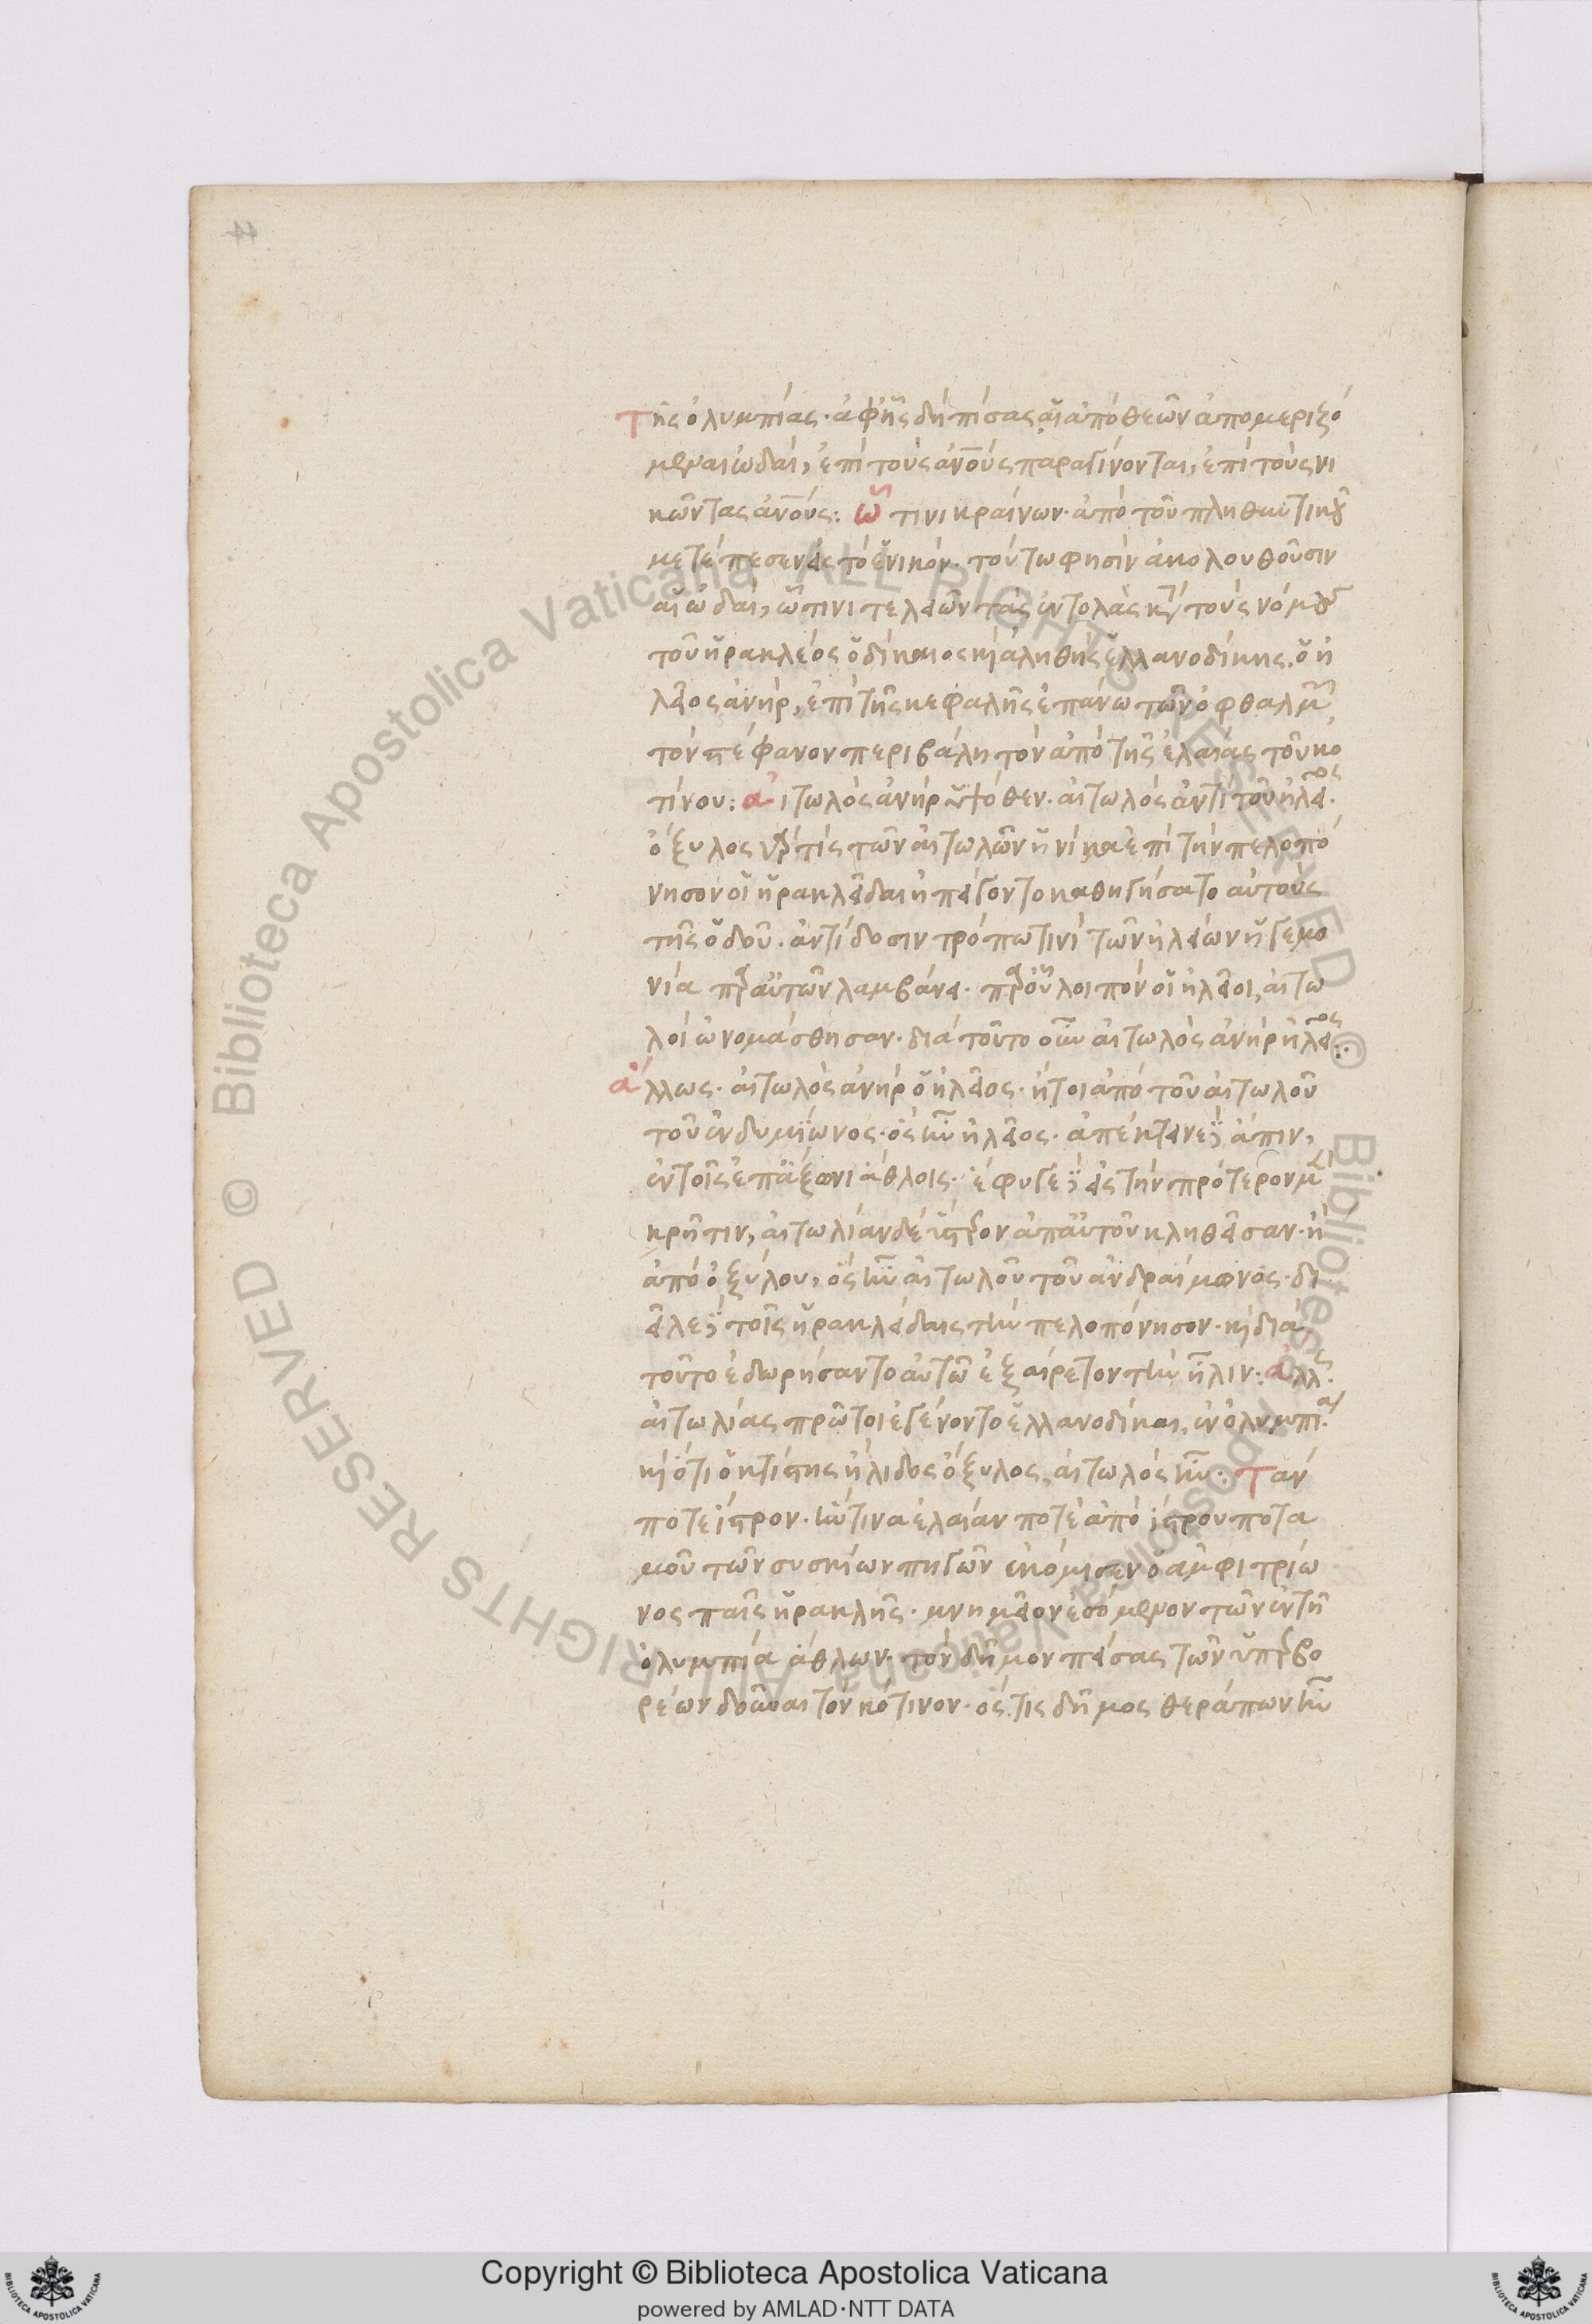 τῆς ὀλυμπίας· ἀφ' ἧς δὴ πίσας αἱ ἀπὸ θεῶν ἀπομεριζό
μεναι ὠδαὶ, ἐπὶ τοὺς ἀνους παραγίνονται, ἐπὶ τοὺς νι
κῶντας ἀνους: ὧ τινι κραίνων· ἀπὸ τοῦ πληθυντικοῦ
μετέπεσεν εἰς τὸ ἑνικόν· τούτω φησὶν ἀκολουθοῦσιν
αἱ ὠδαὶ, ὧ τινι τελειῶν τὰς ἐντολὰς καὶ τοὺς νόμους
τοῦ ἡρακλέος ὁ δίκαιος καὶ ἀληθὴς ἑλλανοδίκης, ὁ ἠ
λεῖος ἀνὴρ, ἐπὶ τῆς κεφαλῆς ἐπάνω τῶν ὀφθαλμῶν
τὸν στέφανον περιβάλη τὸν ἀπὸ τῆς ἐλαίας τοῦ κο
τίνου: αἰτωλὸς ἀνὴρ ὑψόθεν· αἰτωλὸς ἀντὶ τοῦ ἠλεῖος·
ὄξυλος γάρ τις τῶν αἰτωλῶν ἡνίκα ἐπὶ τὴν πελοπό
νησον οἱ ἡρακλεῖδαι ἠπείγοντο καθηγήσατο αὐτοὺς
τῆς ὁδοῦ· ἀντίδοσιν τρόπω τινὶ τῶν ἠλείων ἡγεμο
νία παρ' αὐτῶν λαμβάνει· παρ' οὗ λοιπὸν οἱ ἠλεῖοι, αἰτω
λοὶ ὠνομάσθησαν· διὰ τοῦτο οὖν αἰτωλὸς ἀνὴρ ἠλεῖος:
ἄλλως· αἰτωλὸς ἀνὴρ ὁ ἠλεῖος· ἤτοι ἀπὸ τοῦ αἰτωλοῦ
τοῦ ἐνδυμίωνος· ὃς ἦν ἠλεῖος· ἀπέκτεινε γὰρ ἄπιν,
ἐν τοῖς ἐπ' ἄξονι ἄθλοις· ἔφυγε γὰρ εἰς τὴν πρότερον μὲν
κρῆτιν, αἰτωλίαν δὲ ὕστερον ἀπ' αὐτοῦ κληθεῖσαν· ἢ
ἀπὸ ὀξύλου, ὃς ἦν αἰτωλοῦ τοῦ ἀνδραίμονος· δι
εῖλε γὰρ τοῖς ἡρακλείδαις τὴν πελοπόνησον· καὶ διὰ
τοῦτο ἐδωρήσαντο αὐτῶ ἐξαίρετον τὴν ἦλιν: ἄλλως·
αἰτωλίας πρῶτοι ἐγένοντο ἑλλανοδίκαι, ἐν ὀλυμπία·
καὶ ὅτι ὁ κτίστης ἤλιδος ὄξυλος, αἰτωλὸς ἦν: τάν
ποτε ἴστρον· ἥν τινα ἐλαίαν ποτὲ ἀπὸ ἴστρου ποτα
μοῦ τῶν συσκίων πηγῶν ἐκόμισεν ὁ ἀμφιτρίω
νος παῖς ἡρακλῆς· μνημεῖον ἐσόμενον τῶν ἐν τῆ
ὀλυμπία ἄθλων· τὸν δῆμον πείσας τῶν ὑπερβο
ρέων δοῦναι τὸν κότινον· ὅστις δῆμος θεράπων ἦν